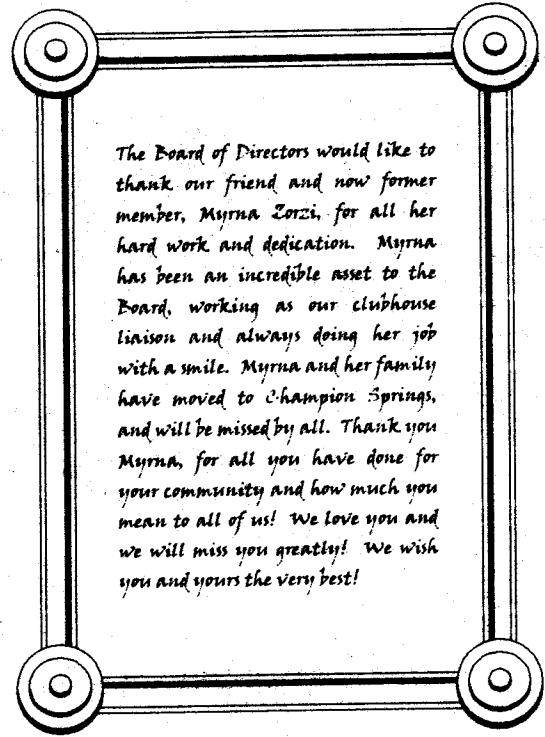 The Board of Directors would like to
thank our friend and now former
member, Myrna Zorzi, for all her
hard work and dedication. Myrna
has been an incredible asset to the
Board, working as our clubhouse
liaison and always doing her job
with a smile. Myrna and her family
have moved to Champion Springs,
and will be missed by all. Thank you
Myrna, for all you have done for
your community and how much you
mean to all of us! We love you and
we will miss you greatly! We wish
you and yours the very best!